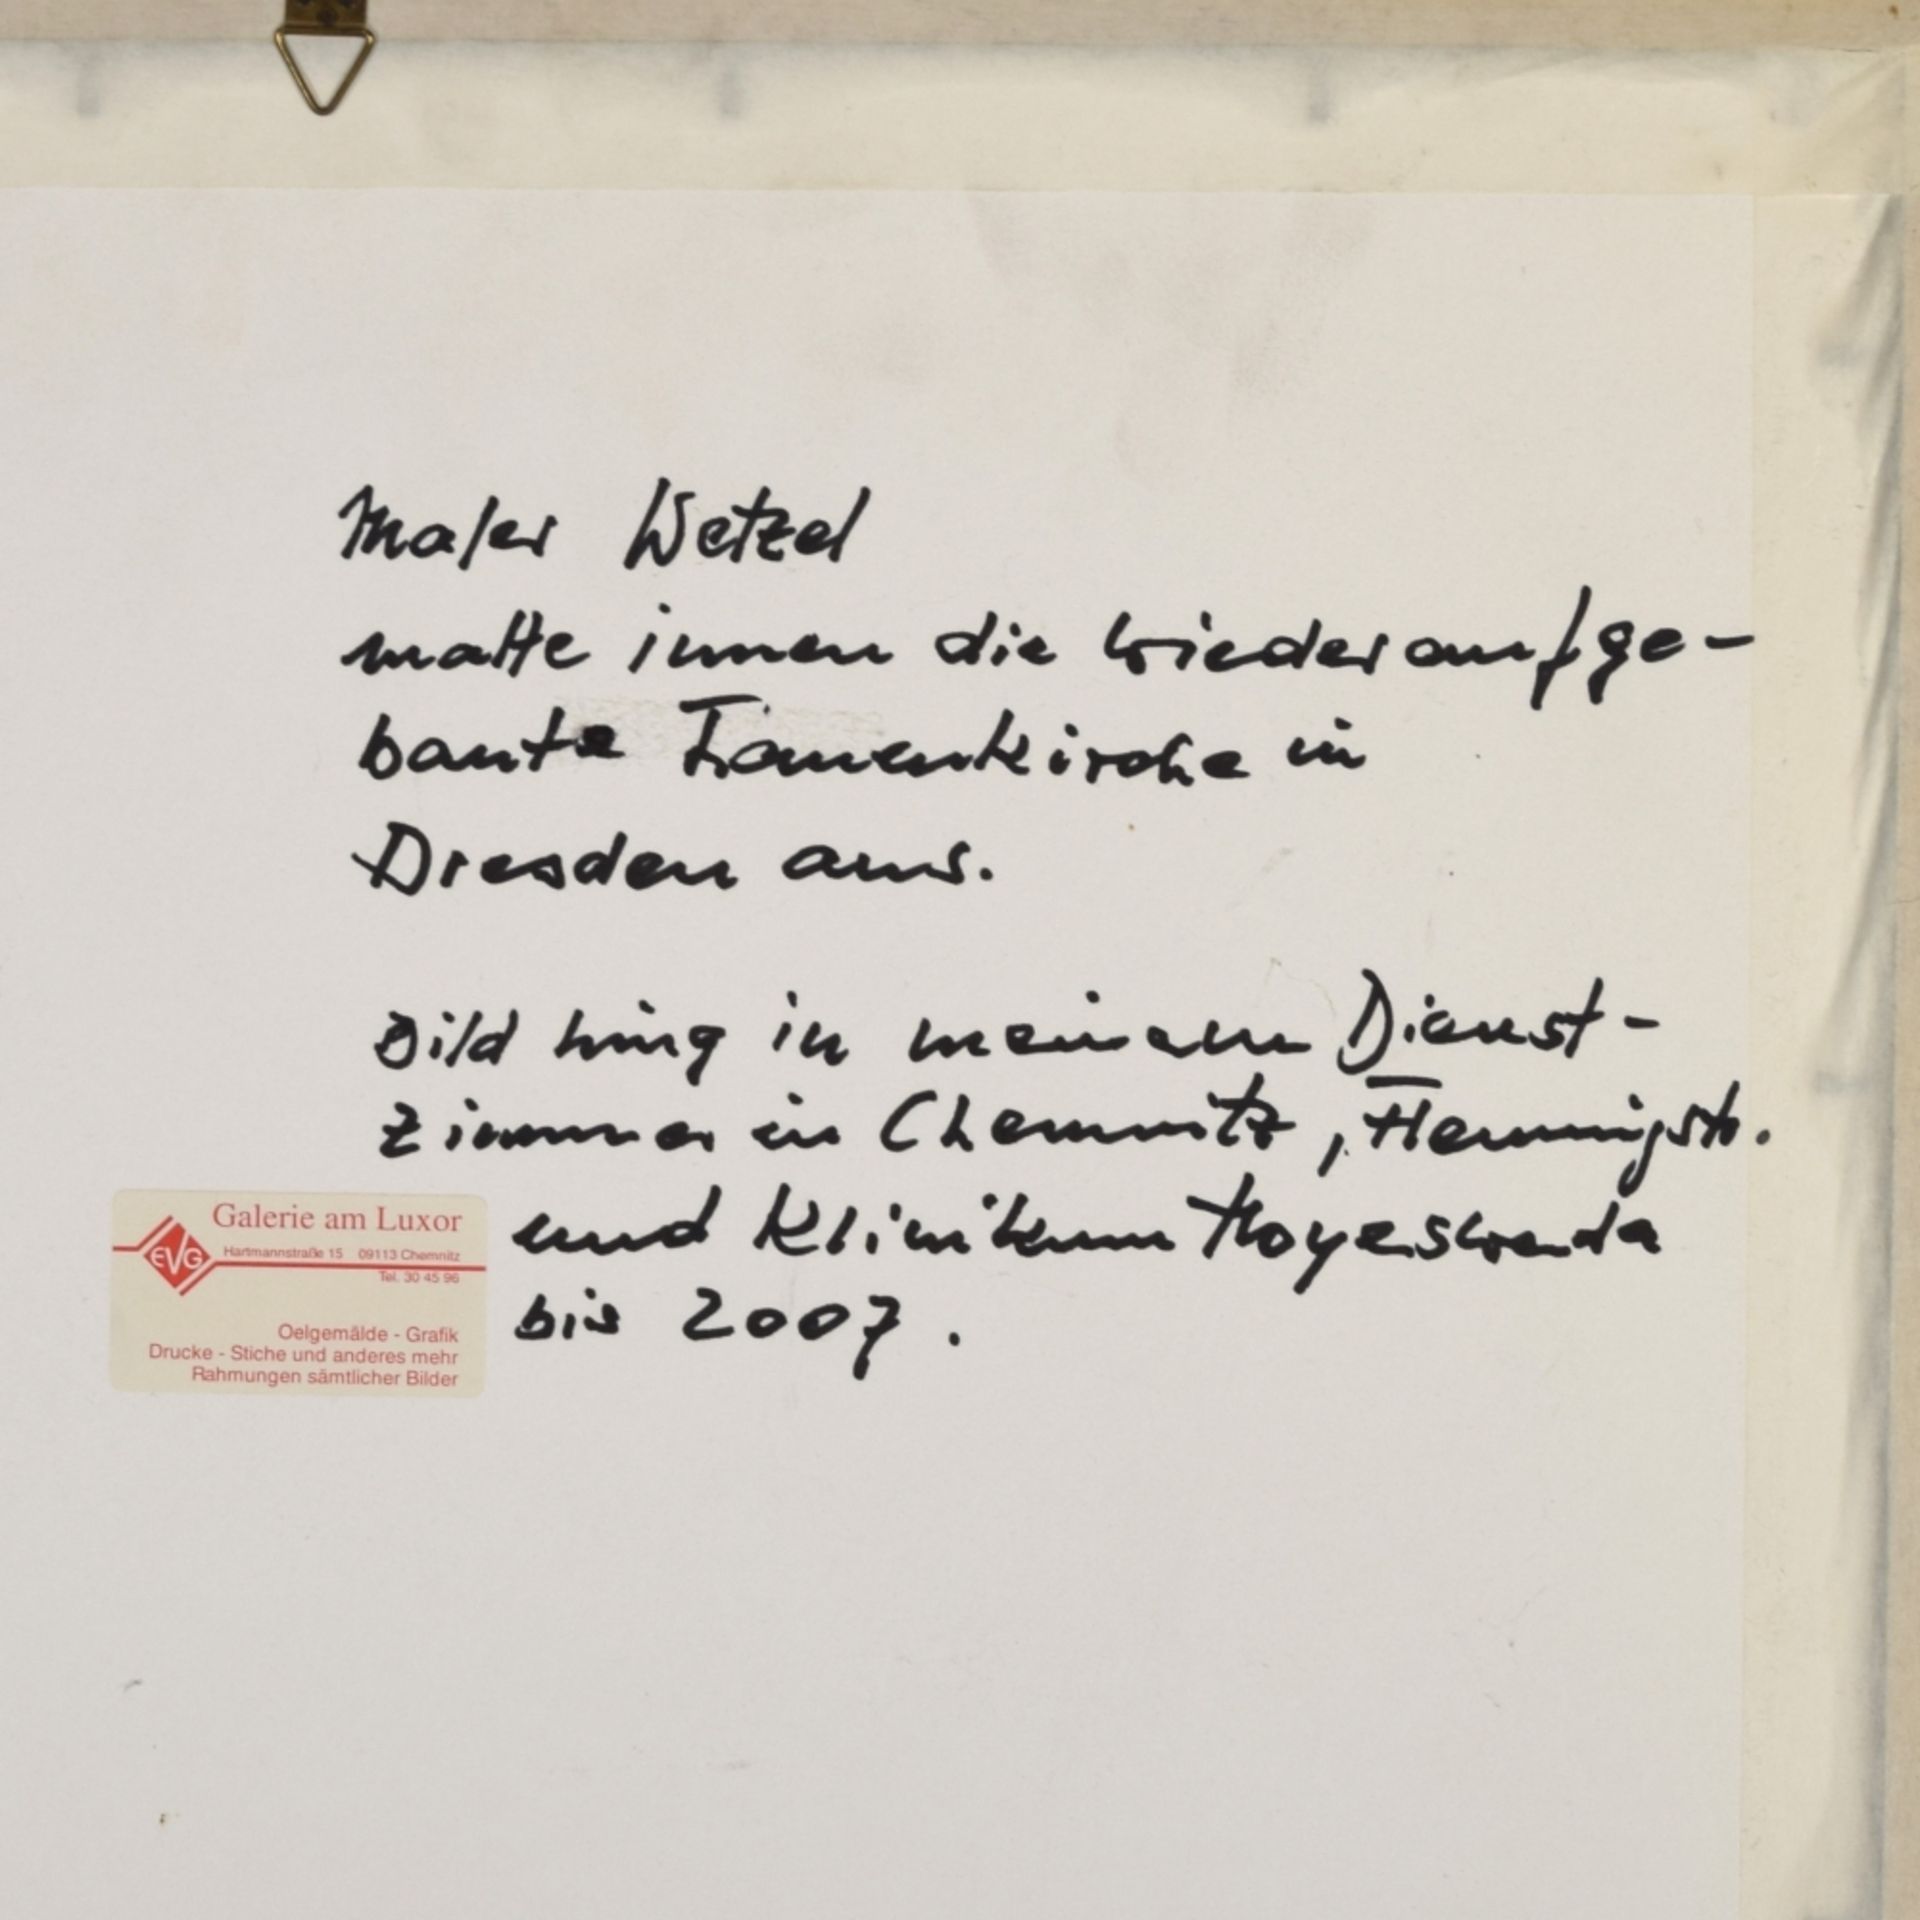 Maler Wetzel
malte innen die wiederaufge-
baute Frauenkirche in
Dresden aus.
Bild hing in meinem Dienst-
zimmer in Chemnitz, Flemmingstr.
und Klinikum Hoyerswerda
bis 2007.
Galerie am Luxor
EVG
Hartmannstraße 15 09113 Chemnitz
Tel. 30 45 96
Oelgemälde - Grafik
Drucke - Stiche und anderes mehr
Rahmungen sämtlicher Bilder